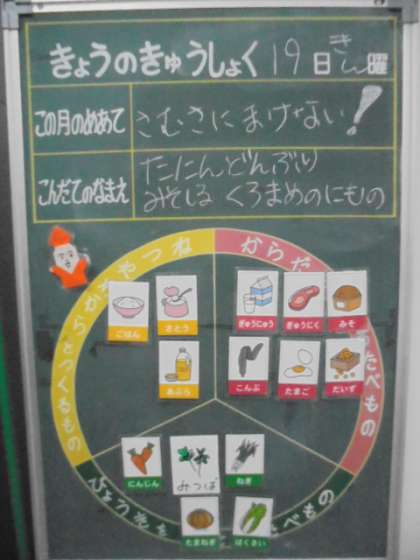 きょうのきゅうしょく 19日 きん曜
この月のめあて さむさにまけない!
こんだてのなまえ たにんどんぶり
みそしる くろまめのにもの
ねつやちから
とつくるもの
からだ
たべもの
ごはん さとう ぎゅうにゅう ぎゅうにく みそ
あぶら こんぶ たまご だいず
にんじん みつば ねぎ
たまねぎ はくさい